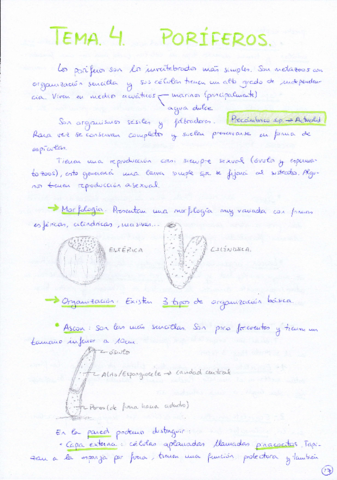 TEMA. 4. PORÍFEROS.
Los poríferos son los invertebrados más simples. Son metazoos con
organización sencilla y sus células tienen un alto grado de independen-
cia. Viven en medio marinos (principalmente)
agua dulce
Son organismos sésiles y filtradores. Precámbrico sp → Actualid
Rara vez se conservan completos y suelen preservarse en forma de
espículas.
Tienen una reproducción casi siempre sexual (óvulos y esperma-
tozoos), esto generará una larva simple que se fijará al sustrato. Algu-
no tienen reproducción asexual.
→ Morfología: Presentan una morfología muy variada con formas
esféricas, cilíndricas, ...
ESFÉRICA CILÍNDRICA
→ Organización: Existen 3 tipos de organización básica.
• Ascon: Son los más sencillos. Son poco frecuentes y tienen un
tamaño inferior a 10cm.
ósculo
Atrio/Espongiocele → cavidad central
Poros (de forma )
En la pared podemos distinguir:
• Capa externa: células aplanadas llamadas pinacocitos. Tapi-
zan a la esponja por fuera, tienen una función protectora y también